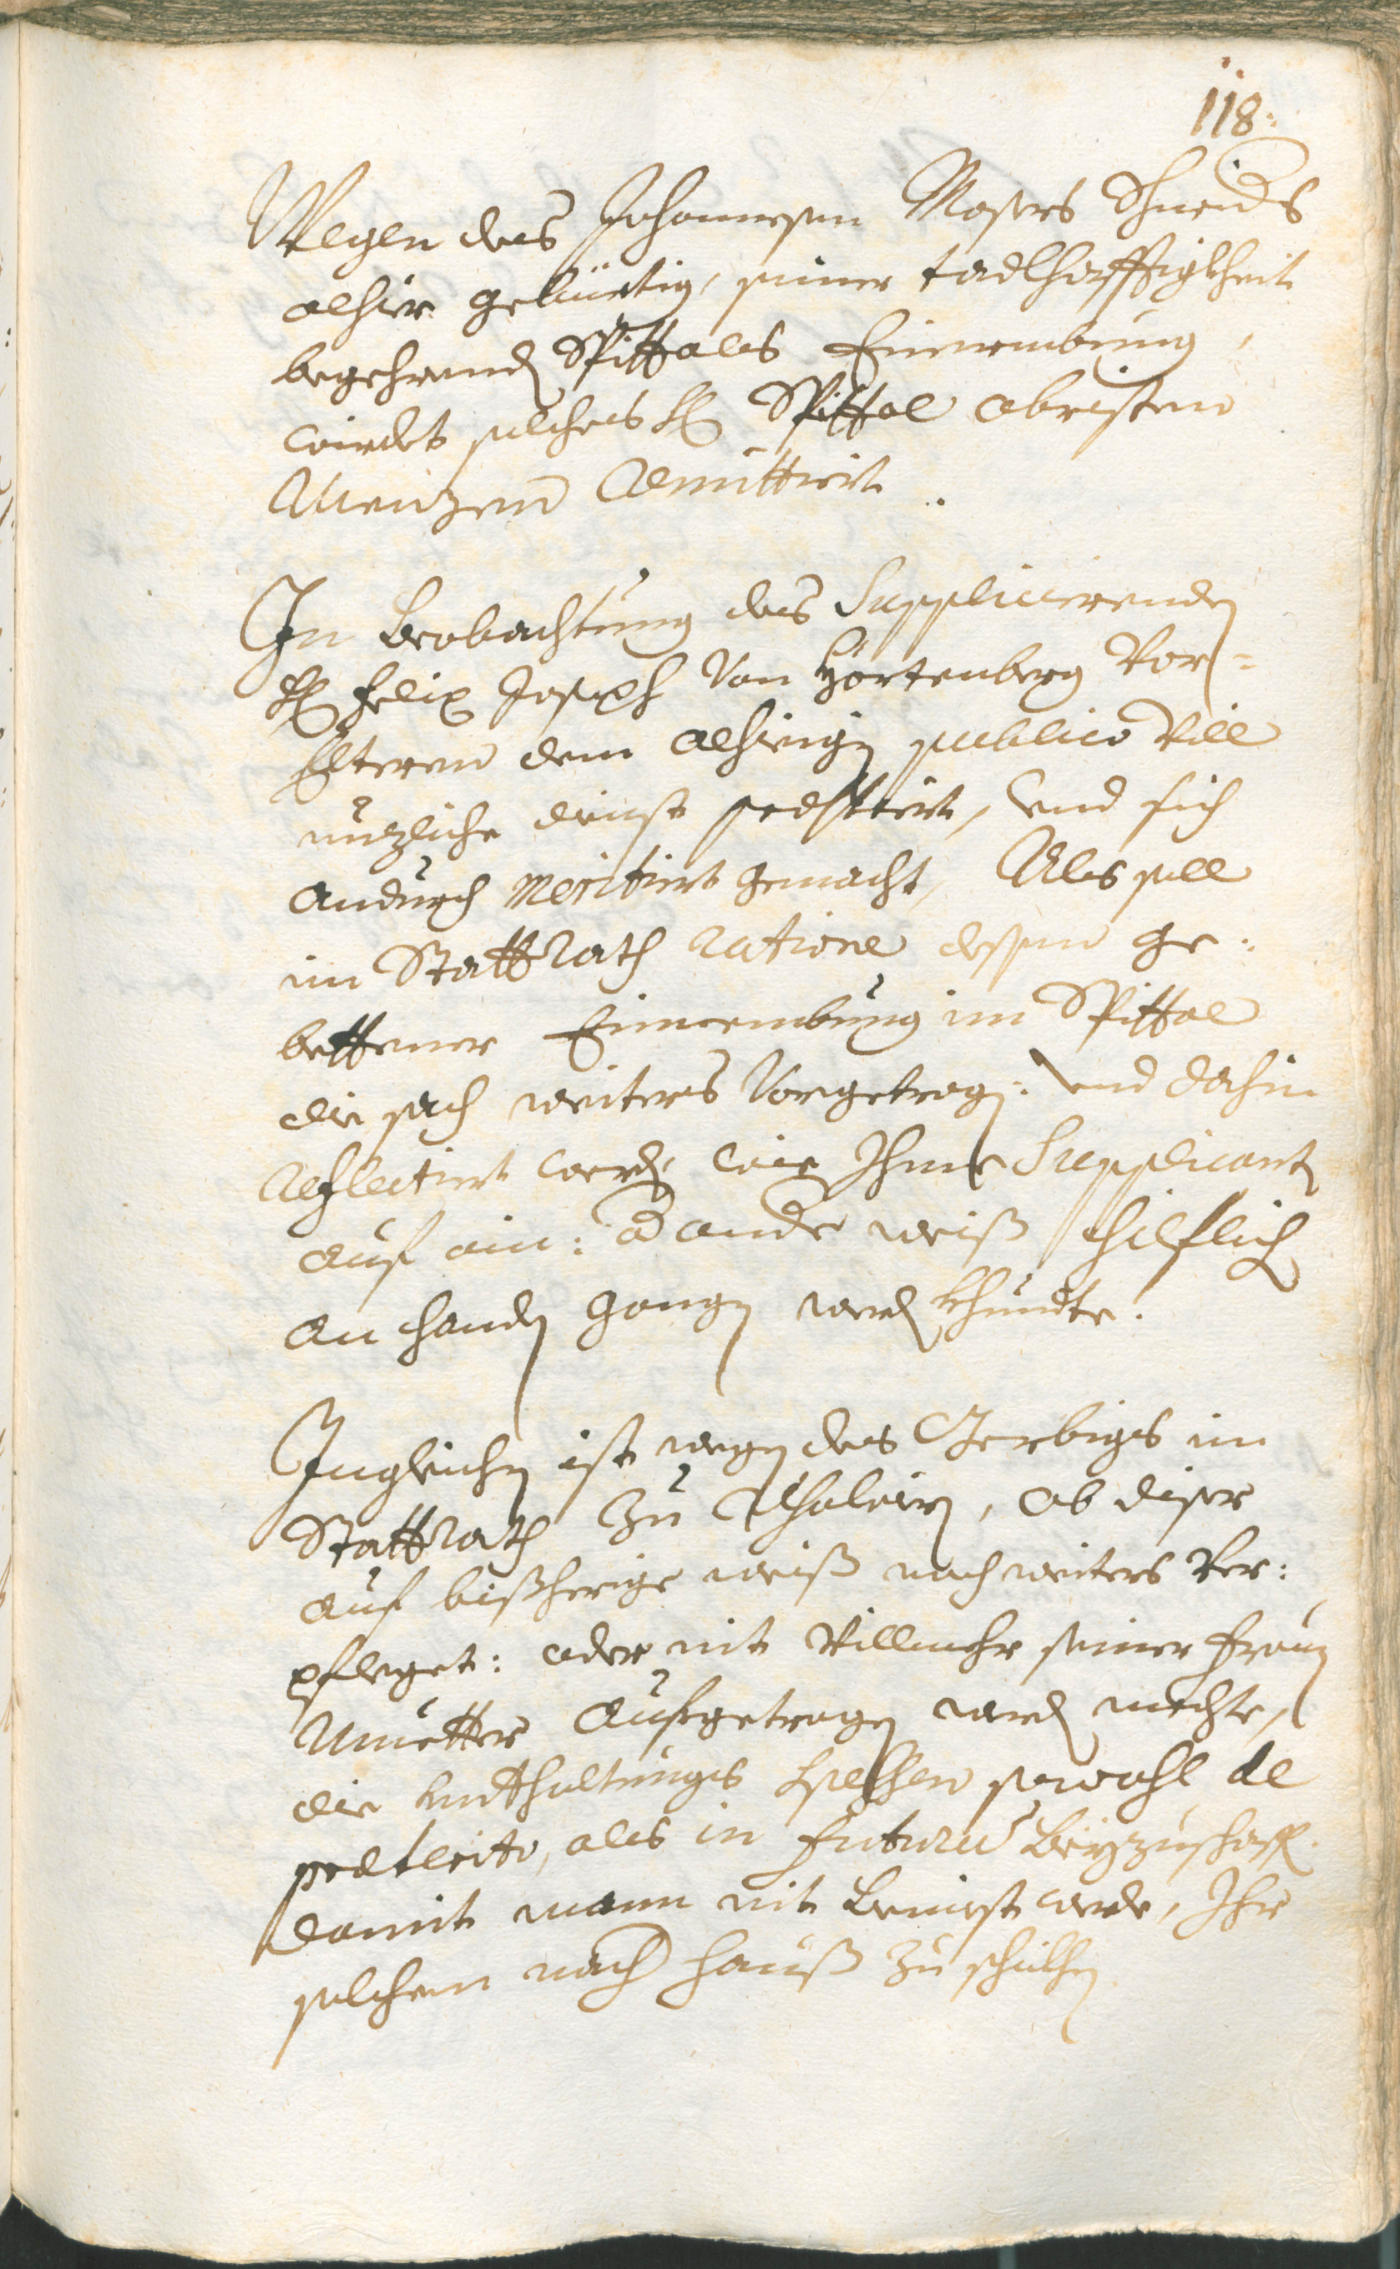 118.
Wegen des Johannesen Mosers Schneids
alhier gebürtig, seiner tadlhafftigkheit
begehrend Spittales Einnembung,
wirdet solches H. Spittal obristen
Menzen Remittiert.
In Beobachtung des Supplicierenden
H. Felix Joseph Von Hörtenberg Vor=
Elteren dem alhieigen publico Vill
nuzliche dienst prestiert, vnd sich
andurch Meritiert gemacht, Als soll
im StattRath ratione dessen ge:
bettener Einnembung im Spittal
die sach weiters Vorgetragen: vnd dahin
Reflectiert werden, wie Ihme Supplicanten
auf ain: oder andere weiß hilflich
an handen gangen werden khundte.
Ingleichen ist wegen des Gerbigs im
StattRath zu , ob diser
auf bißherige weiß noch weiters Ver:
pfleget: oder nit Villmehr seiner Frauen
Muetter aufgetragen werden mechte,
die Vndthaltungs Spesen sowohl de
praeterito, als in futurum beyzuschaffen.
damit mann nit bemiest werde, Ihr
solchen nach hauß zu schickhen